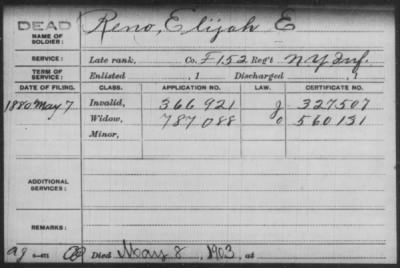 DEAD
NAME OF SOLDIER:
Reno, Elijah E
SERVICE:
Late rank, Co. F 152 Reg't N Y Inf.
TERM OF SERVICE:
Enlisted , 1 Discharged , 1
DATE OF FILING. CLASS. APPLICATION NO. LAW. CERTIFICATE NO.
1880 May 7 Invalid, 366 921 J 327507
Widow, 787 088 o 560131
Minor,
ADDITIONAL SERVICES:
REMARKS:
Died May 8, 1903, at